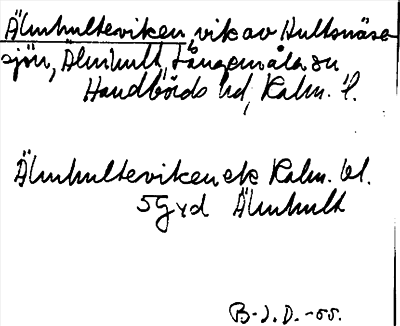 Älmhulteviken, vik av Hultsnäse-
sjön, Älmhult, Långemåla sn
Handbörds hd, Kalm. l.
Älmhulteviken ek Kalm. bl.
5 g y d Älmhult
B-J. D. -55.